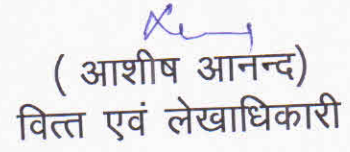 ( आशीष आनन्द)
वित्त एवं लेखाधिकारी